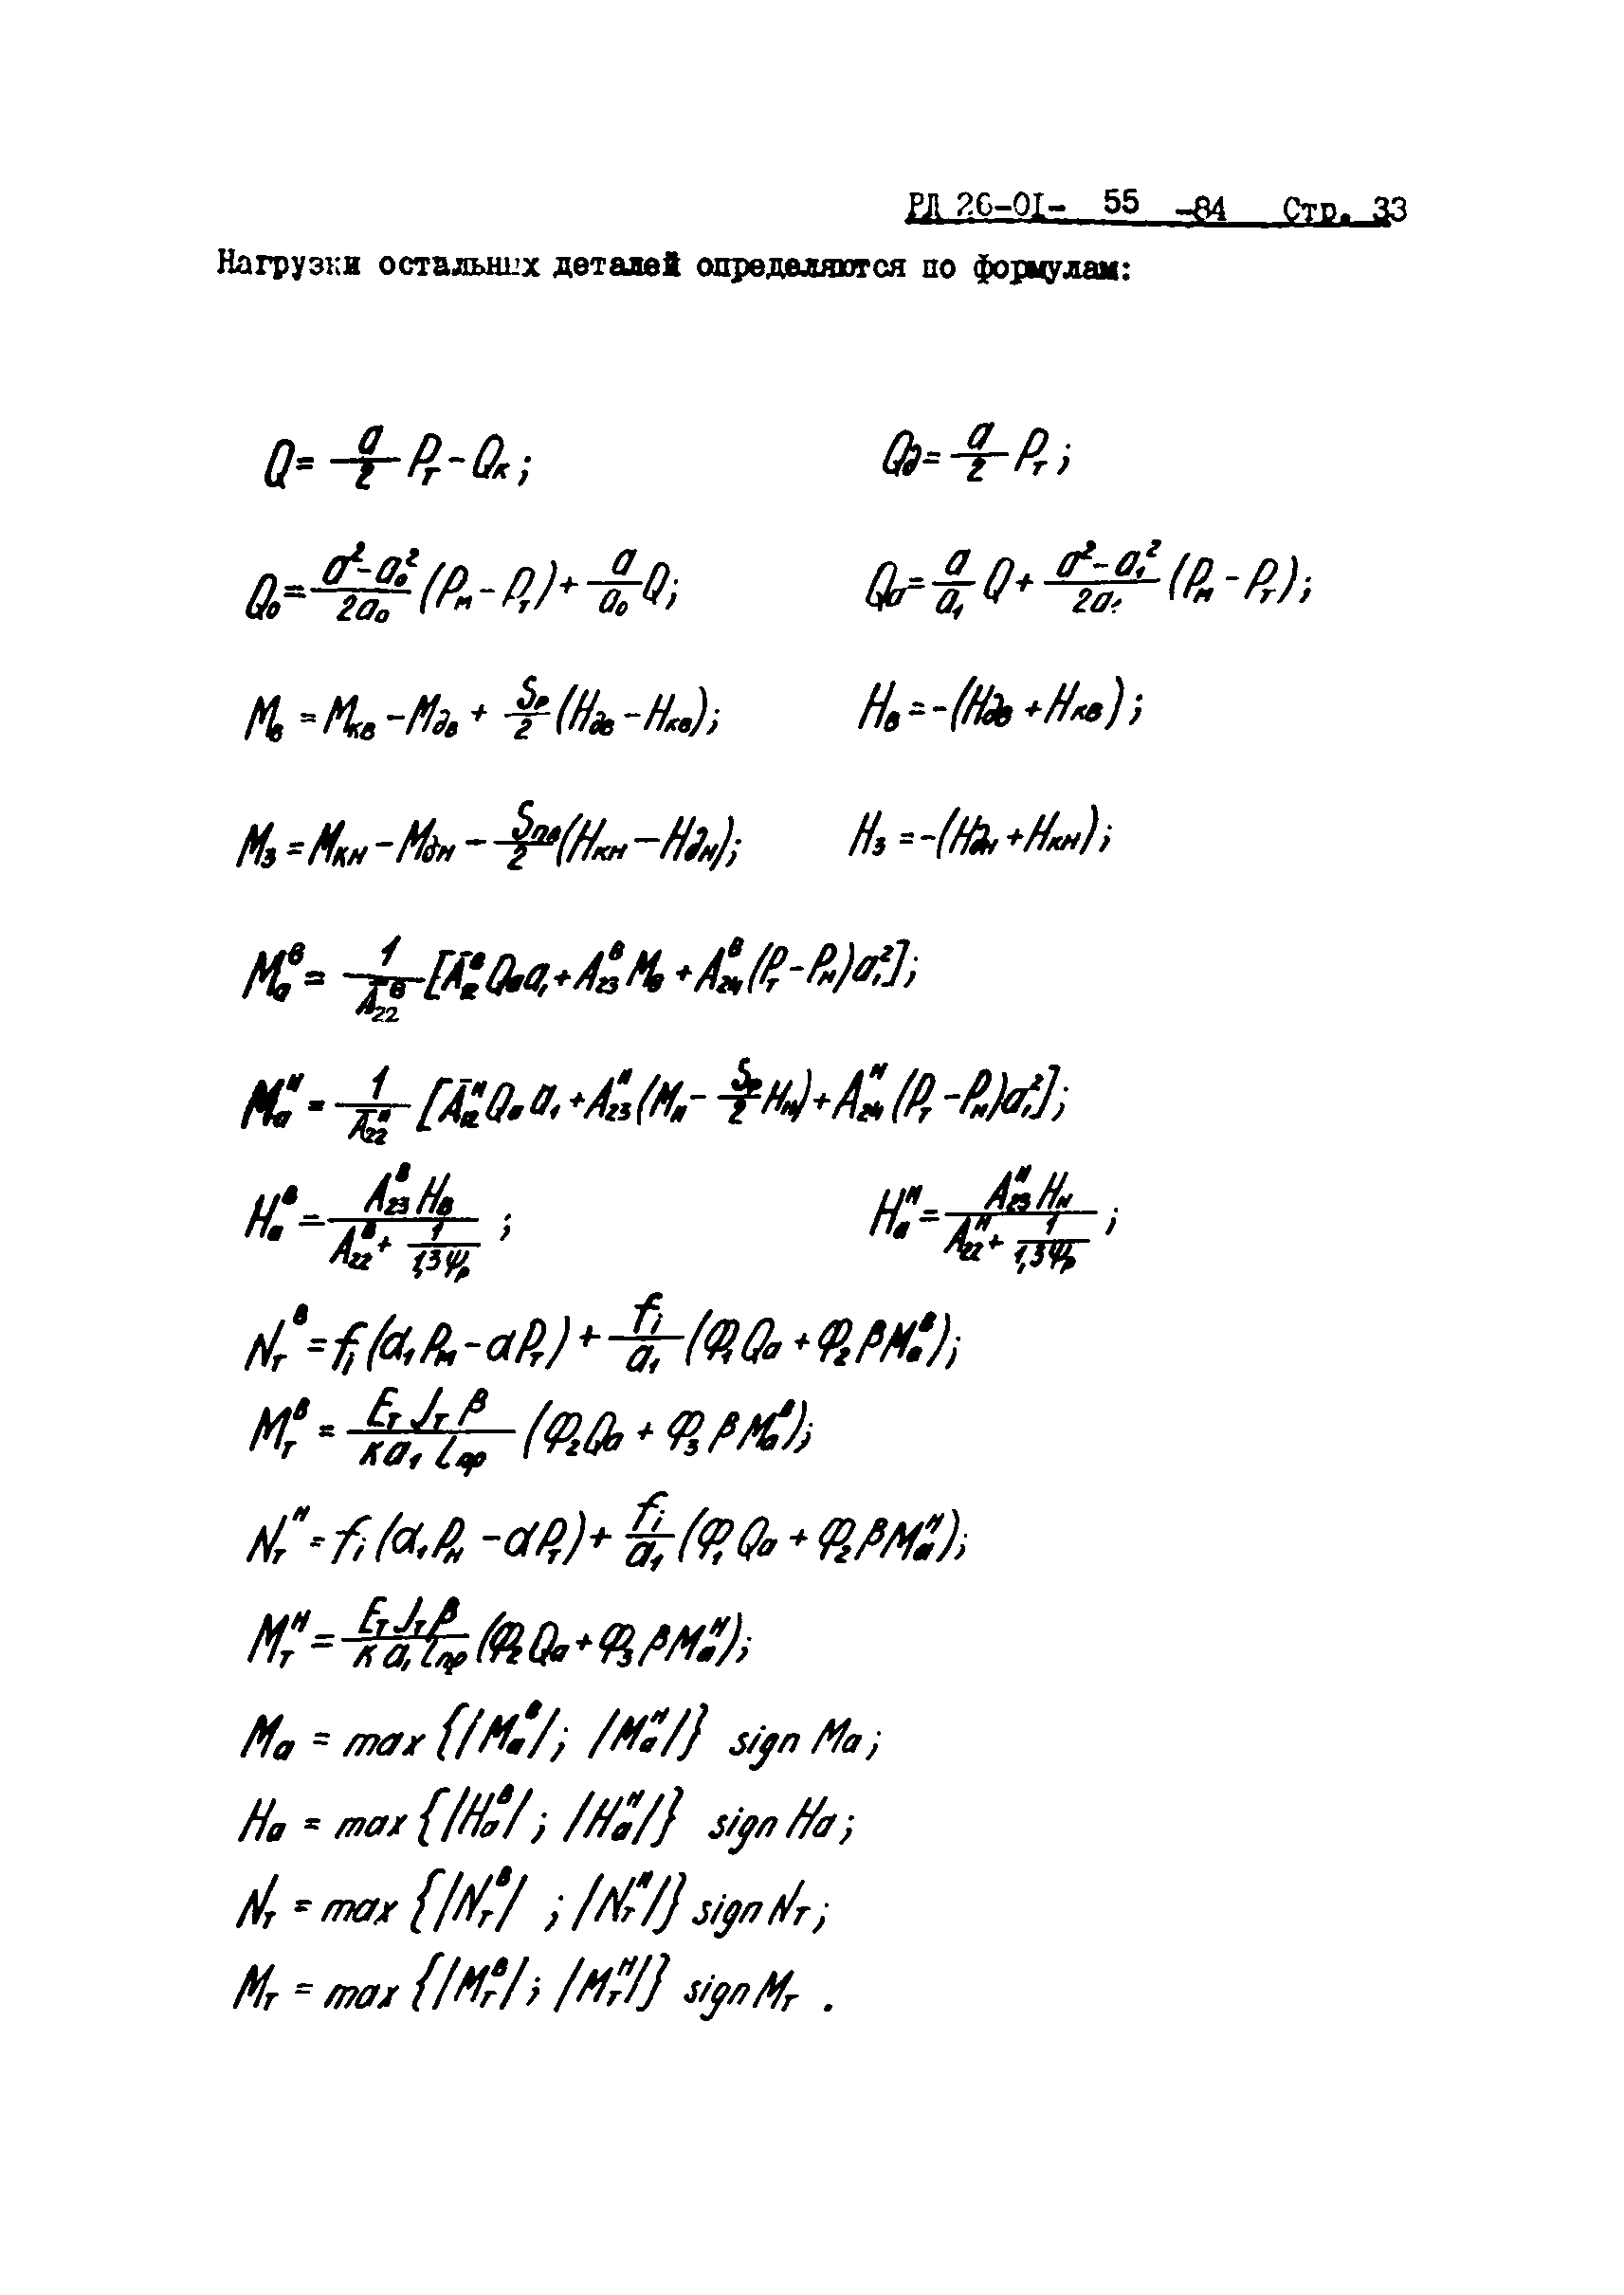 РД 26-01- 55 -84 Стр. 33
Нагрузки остальных деталей определяются по формулам:
Q = \frac{a}{2} P_т - Q_к ; Q_д = \frac{a}{2} P_т ;
Q_0 = \frac{a^2 - a_0^2}{2a_0} (P_м - P_т) + \frac{a}{a_0} Q ; Q_a = \frac{a}{a_1} Q + \frac{a^2 - a_1^2}{2a_1} (P_м - P_т) ;
M_в = M_{кв} - M_{дв} + \frac{S_р}{2} (H_{дв} - H_{кв}) ; H_в = -(H_{дв} + H_{кв}) ;
M_з = M_{кн} - M_{дн} - \frac{S_{пв}}{2} (H_{кн} - H_{дн}) ; H_з = -(H_{дн} + H_{кн}) ;
M_a^в = \frac{1}{\bar{A}_{22}^в} [\bar{A}_{12}^в Q_a a_1 + A_{23}^в M_в + A_{24}^в (P_т - P_м) a_1^2] ;
M_a^н = \frac{1}{\bar{A}_{22}^н} [\bar{A}_{12}^н Q_a a_1 + A_{23}^н (M_н - \frac{S_р}{2} H_н) + A_{24}^н (P_т - P_м) a_1^2] ;
H_a^в = \frac{A_{23}^в H_в}{A_{22}^в + \frac{1}{1,3 ψ_р}} ; H_a^н = \frac{A_{23}^н H_н}{A_{22}^н + \frac{1}{1,3 ψ_р}} ;
N_т^в = f_i (a_1 P_м - a P_т) + \frac{f_i}{a_1} (Ф_1 Q_a + Ф_2 β M_a^в) ;
M_т^в = \frac{E_т J_т β}{к a_1 l_{пр}} (Ф_2 Q_a + Ф_3 β M_a^в) ;
N_т^н = f_i (a_1 P_н - a P_т) + \frac{f_i}{a_1} (Ф_1 Q_a + Ф_2 β M_a^н) ;
M_т^н = \frac{E_т J_т β}{к a_1 l_{пр}} (Ф_2 Q_a + Ф_3 β M_a^н) ;
M_a = max {|M_a^в| ; |M_a^н|} sign M_a ;
H_a = max {|H_a^в| ; |H_a^н|} sign H_a ;
N_т = max {|N_т^в| ; |N_т^н|} sign N_т ;
M_т = max {|M_т^в| ; |M_т^н|} sign M_т .